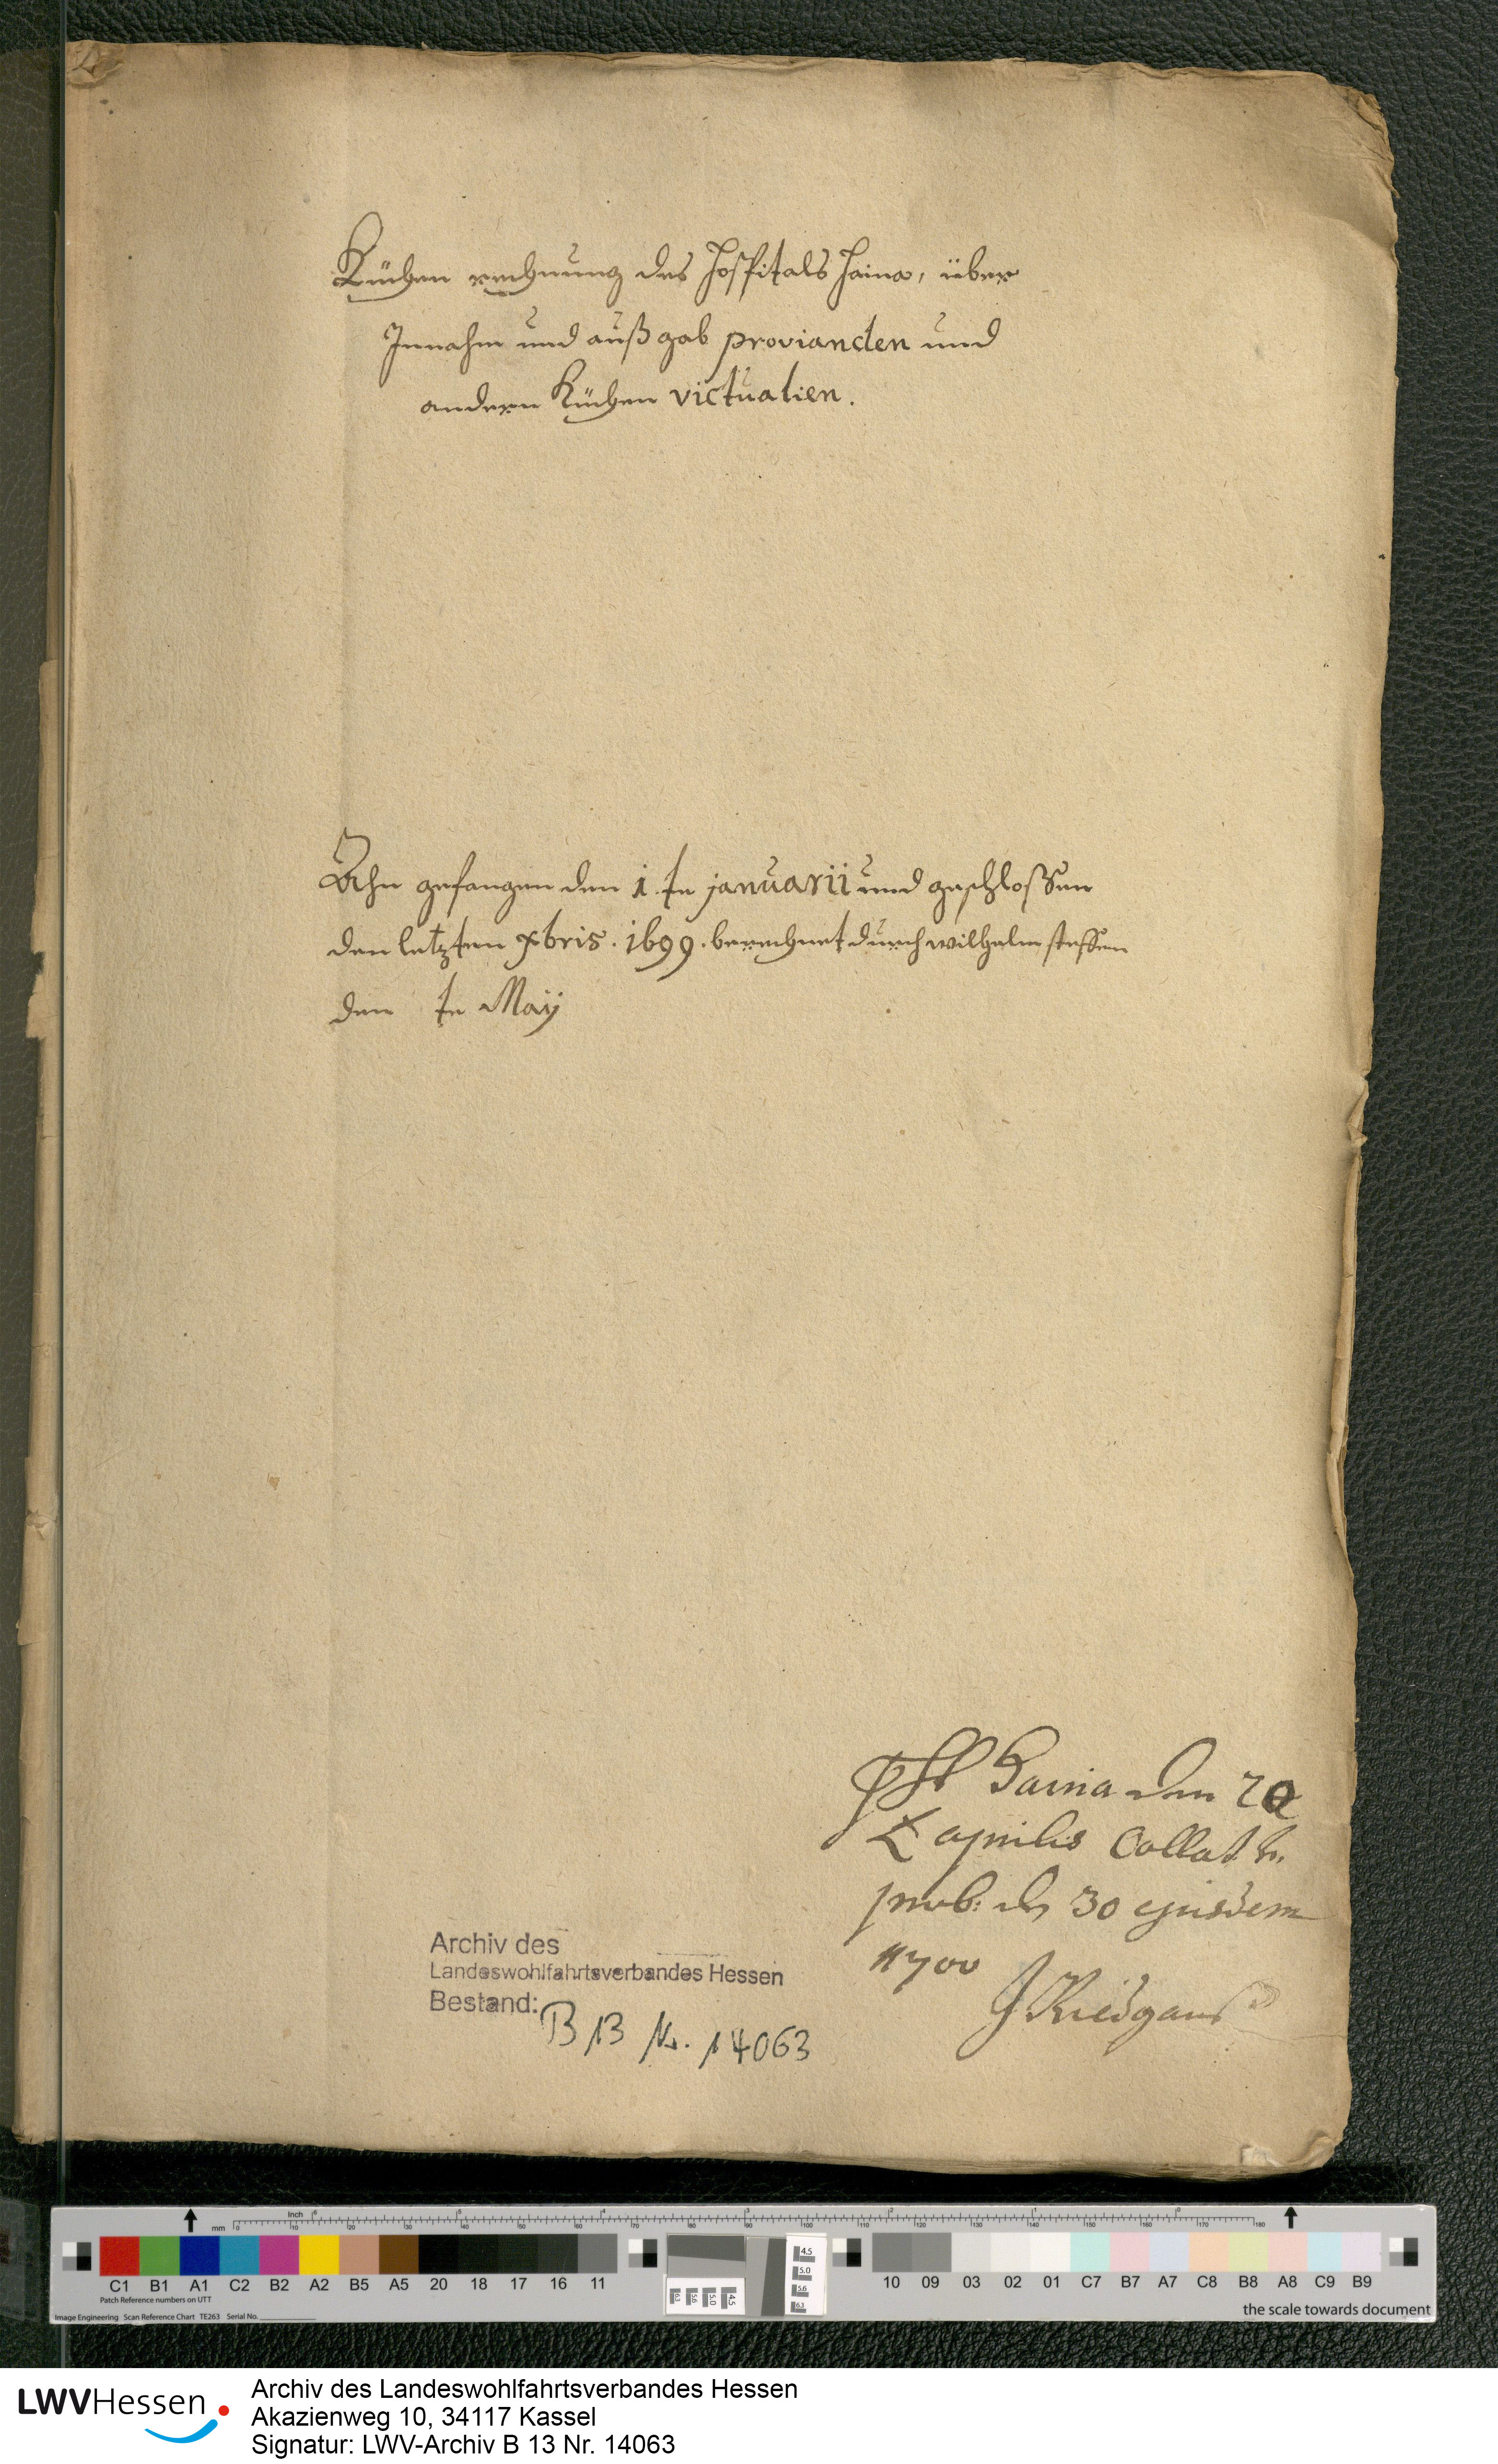 Küchen rechnung des Hospitals Haina, über
Innahm und außgab provianden und
andern Küchen victualien.
Ahn gefangen den 1. te januarii und geschlossen
den letzten xbris. 1699. berechnet durch wilhelm steßen
den te Maÿ
Haina den 20
aprilis Collat. &
prob: d. 30 ejusdem
1700
J Riedgans
Archiv des
Landeswohlfahrtsverbandes Hessen
Bestand: B 13 Nr. 14063
Inch
mm
C1 B1 A1 C2 B2 A2 B5 A5 20 18 17 16 11
10 09 03 02 01 C7 B7 A7 C8 B8 A8 C9 B9
Patch Reference numbers on UTT
Image Engineering Scan Reference Chart TE263 Serial No.
the scale towards document
LWVHessen
Archiv des Landeswohlfahrtsverbandes Hessen
Akazienweg 10, 34117 Kassel
Signatur: LWV-Archiv B 13 Nr. 14063